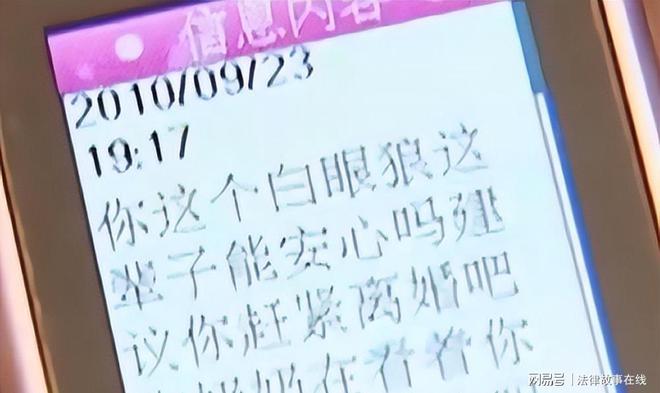 信息内容
2010/09/23
19:17
你这个白眼狼这
辈子能安心吗建
议你赶紧离婚吧
奶奶在看着你
网易号 | 法律故事在线